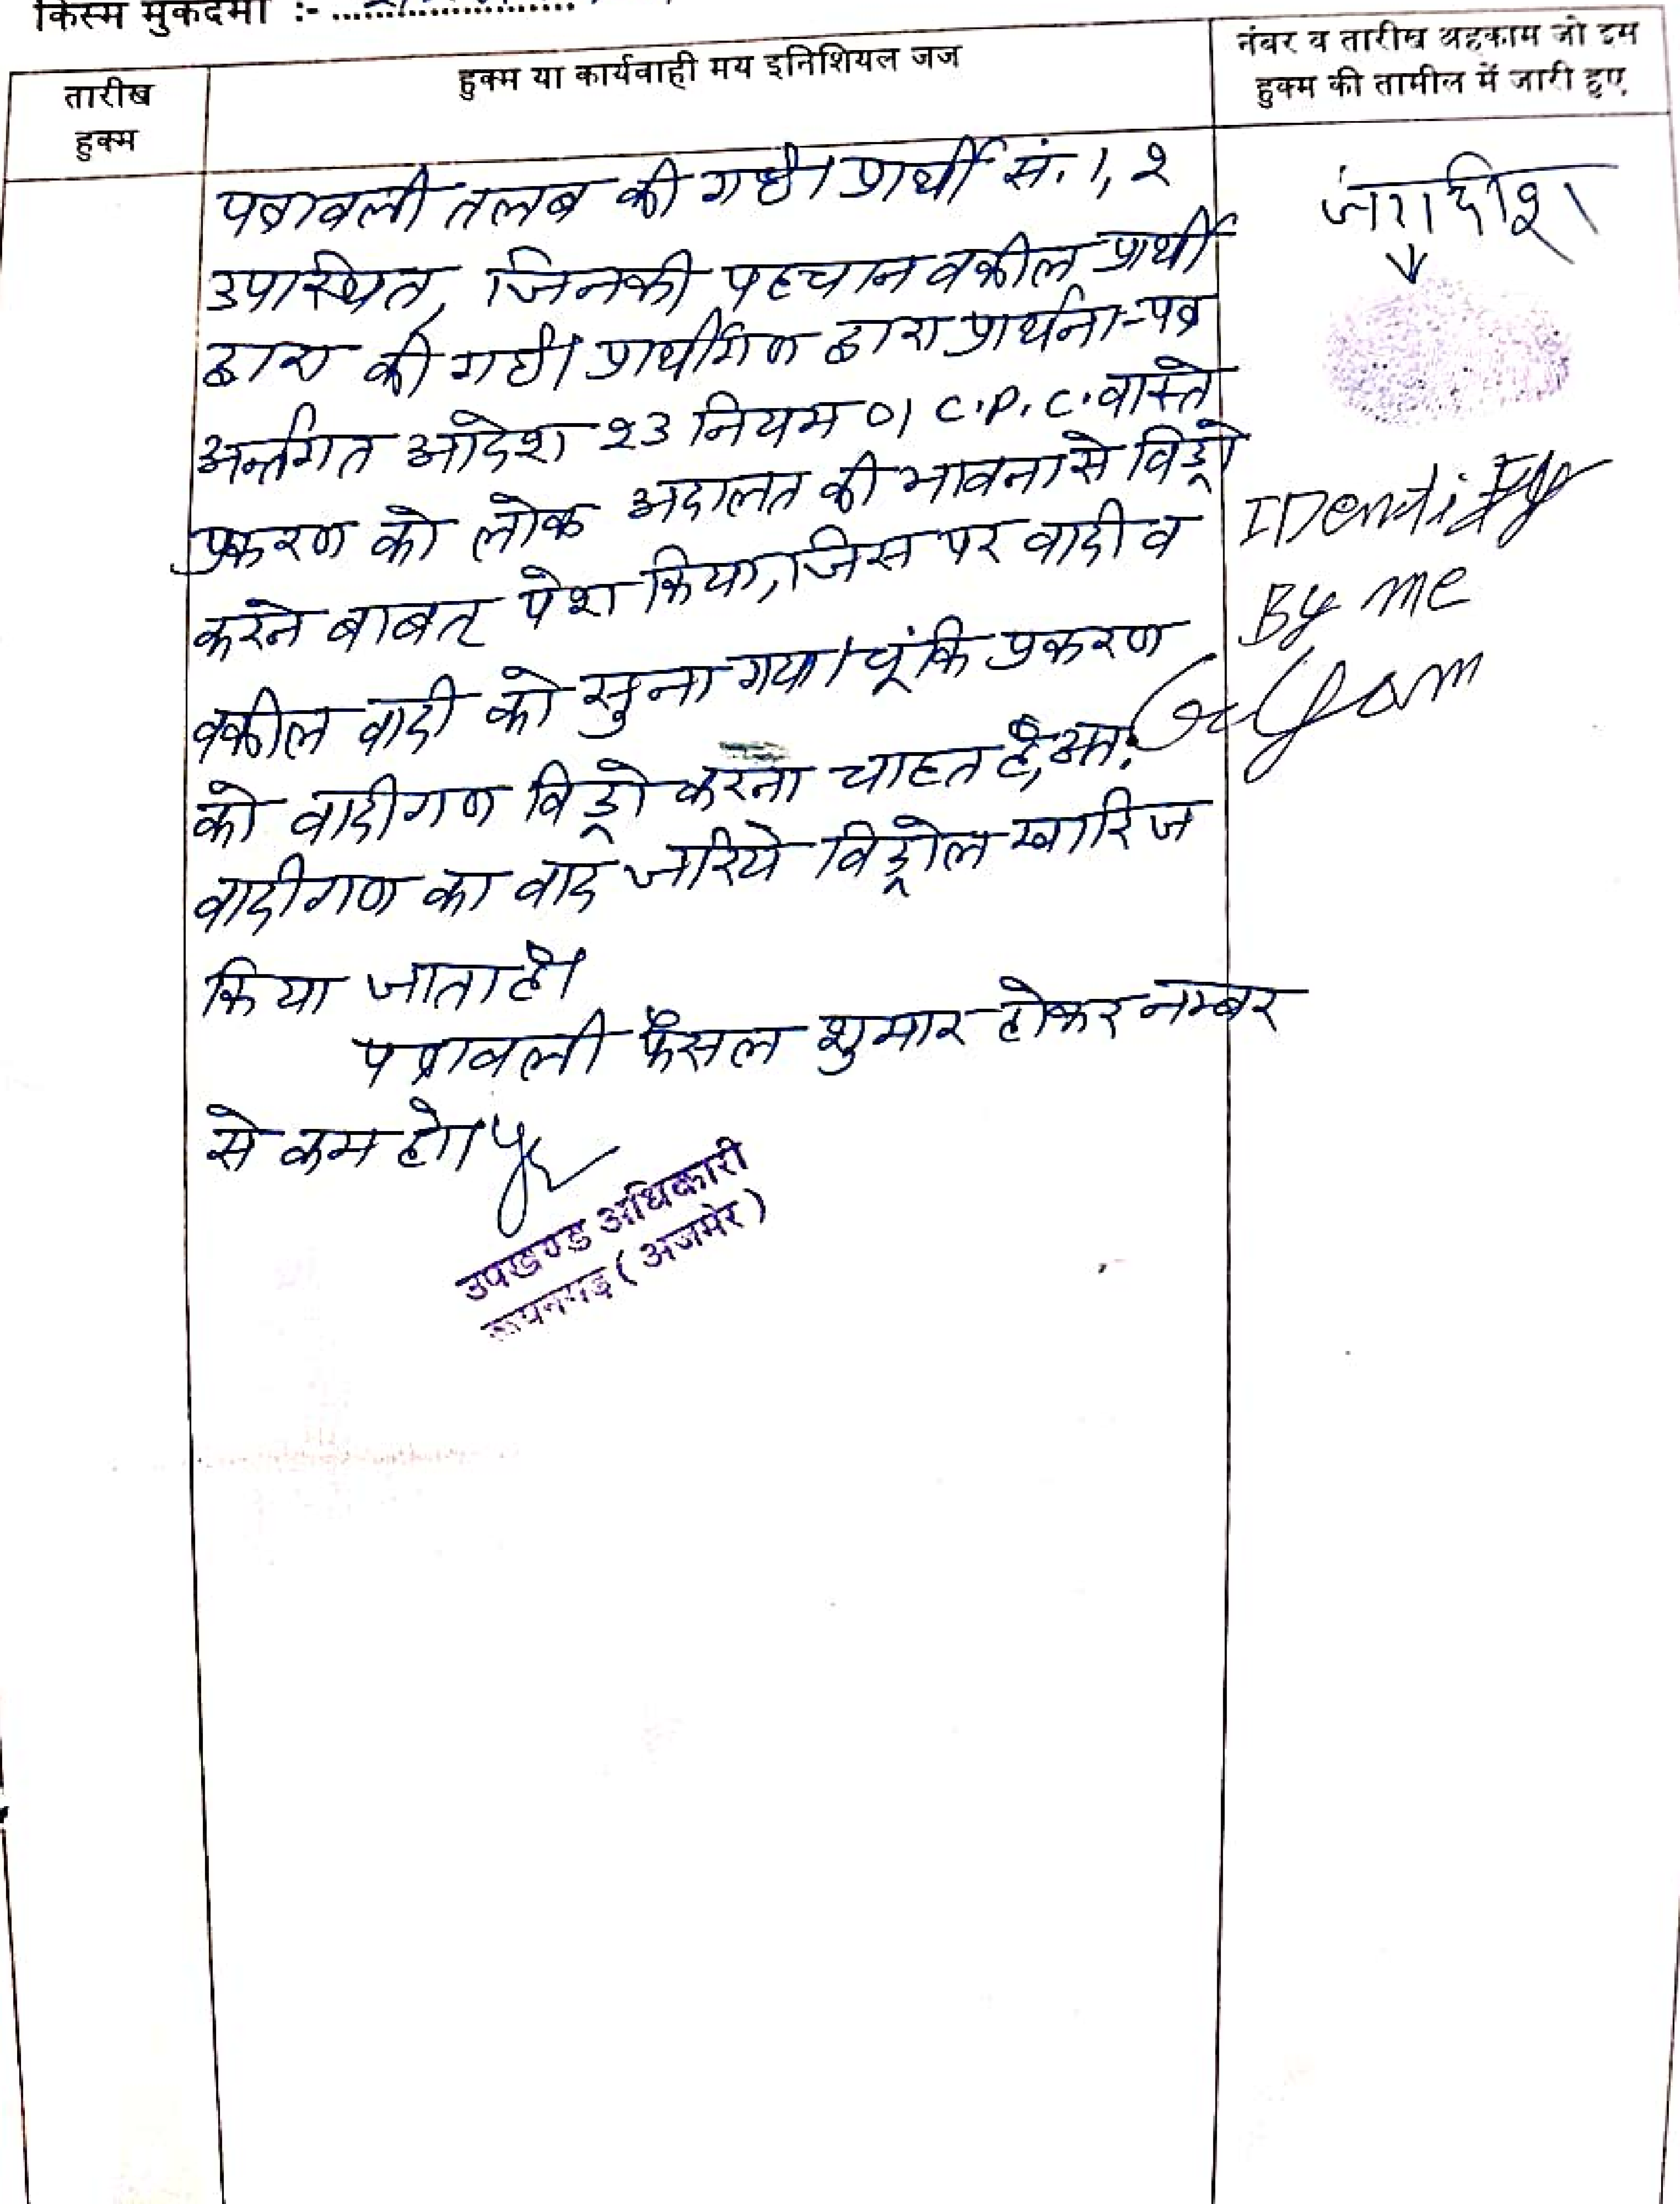 किस्म मुकदमा :-
तारीख
हुक्म
हुक्म या कार्यवाही मय इनिशियल जज
नंबर व तारीख अहकाम जो इस
हुक्म की तामील में जारी हुए
पत्रावली तलब की गई। प्रार्थी सं. 1, 2
उपस्थित, जिनकी पहचान वकील प्रार्थी
द्वारा की गई। प्रार्थीगण द्वारा प्रार्थना-पत्र
अर्न्तगत आदेश 23 नियम 01 C.P.C. वास्ते
प्रकरण को लोक अदालत की भावना से विड्रो
करने बाबत् पेश किया, जिस पर वादी व
वकील वादी को सुना गया। चूंकि प्रकरण
को वादीगण विड्रो करना चाहते है, अतः
वादीगण का वाद जरिये विड्रोल खारिज
किया जाता है।
पत्रावली फैसल शुमार होकर नम्बर
से कम हो।
उपखण्ड अधिकारी
रूपनगढ़ (अजमेर)
जगदीश
IDentify
By me